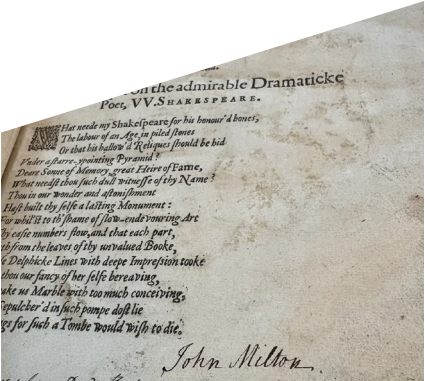 on the admirable Dramaticke
Poet, VV. SHAKESPEARE.
WHat neede my Shakespeare for his honour'd bones,
The labour of an Age, in piled stones
Or that his hallow'd Reliques should be hid
Vnder a starre-ypointing Pyramid?
Deare Sonne of Memory, great Heire of Fame,
What needst thou such dull witnesse of thy Name?
Thou in our wonder and astonishment
Hast built thy selfe a lasting Monument:
For whil'st to th'shame of slow-endevouring Art
Thy easie numbers flow, and that each part,
from the leaves of thy unvalued Booke,
Delphicke Lines with deepe Impression tooke
thou our fancy of her selfe bereaving,
us Marble with too much conceiving,
Sepulcher'd in such pompe dost lie
for such a Tombe would wish to die.
John Milton.